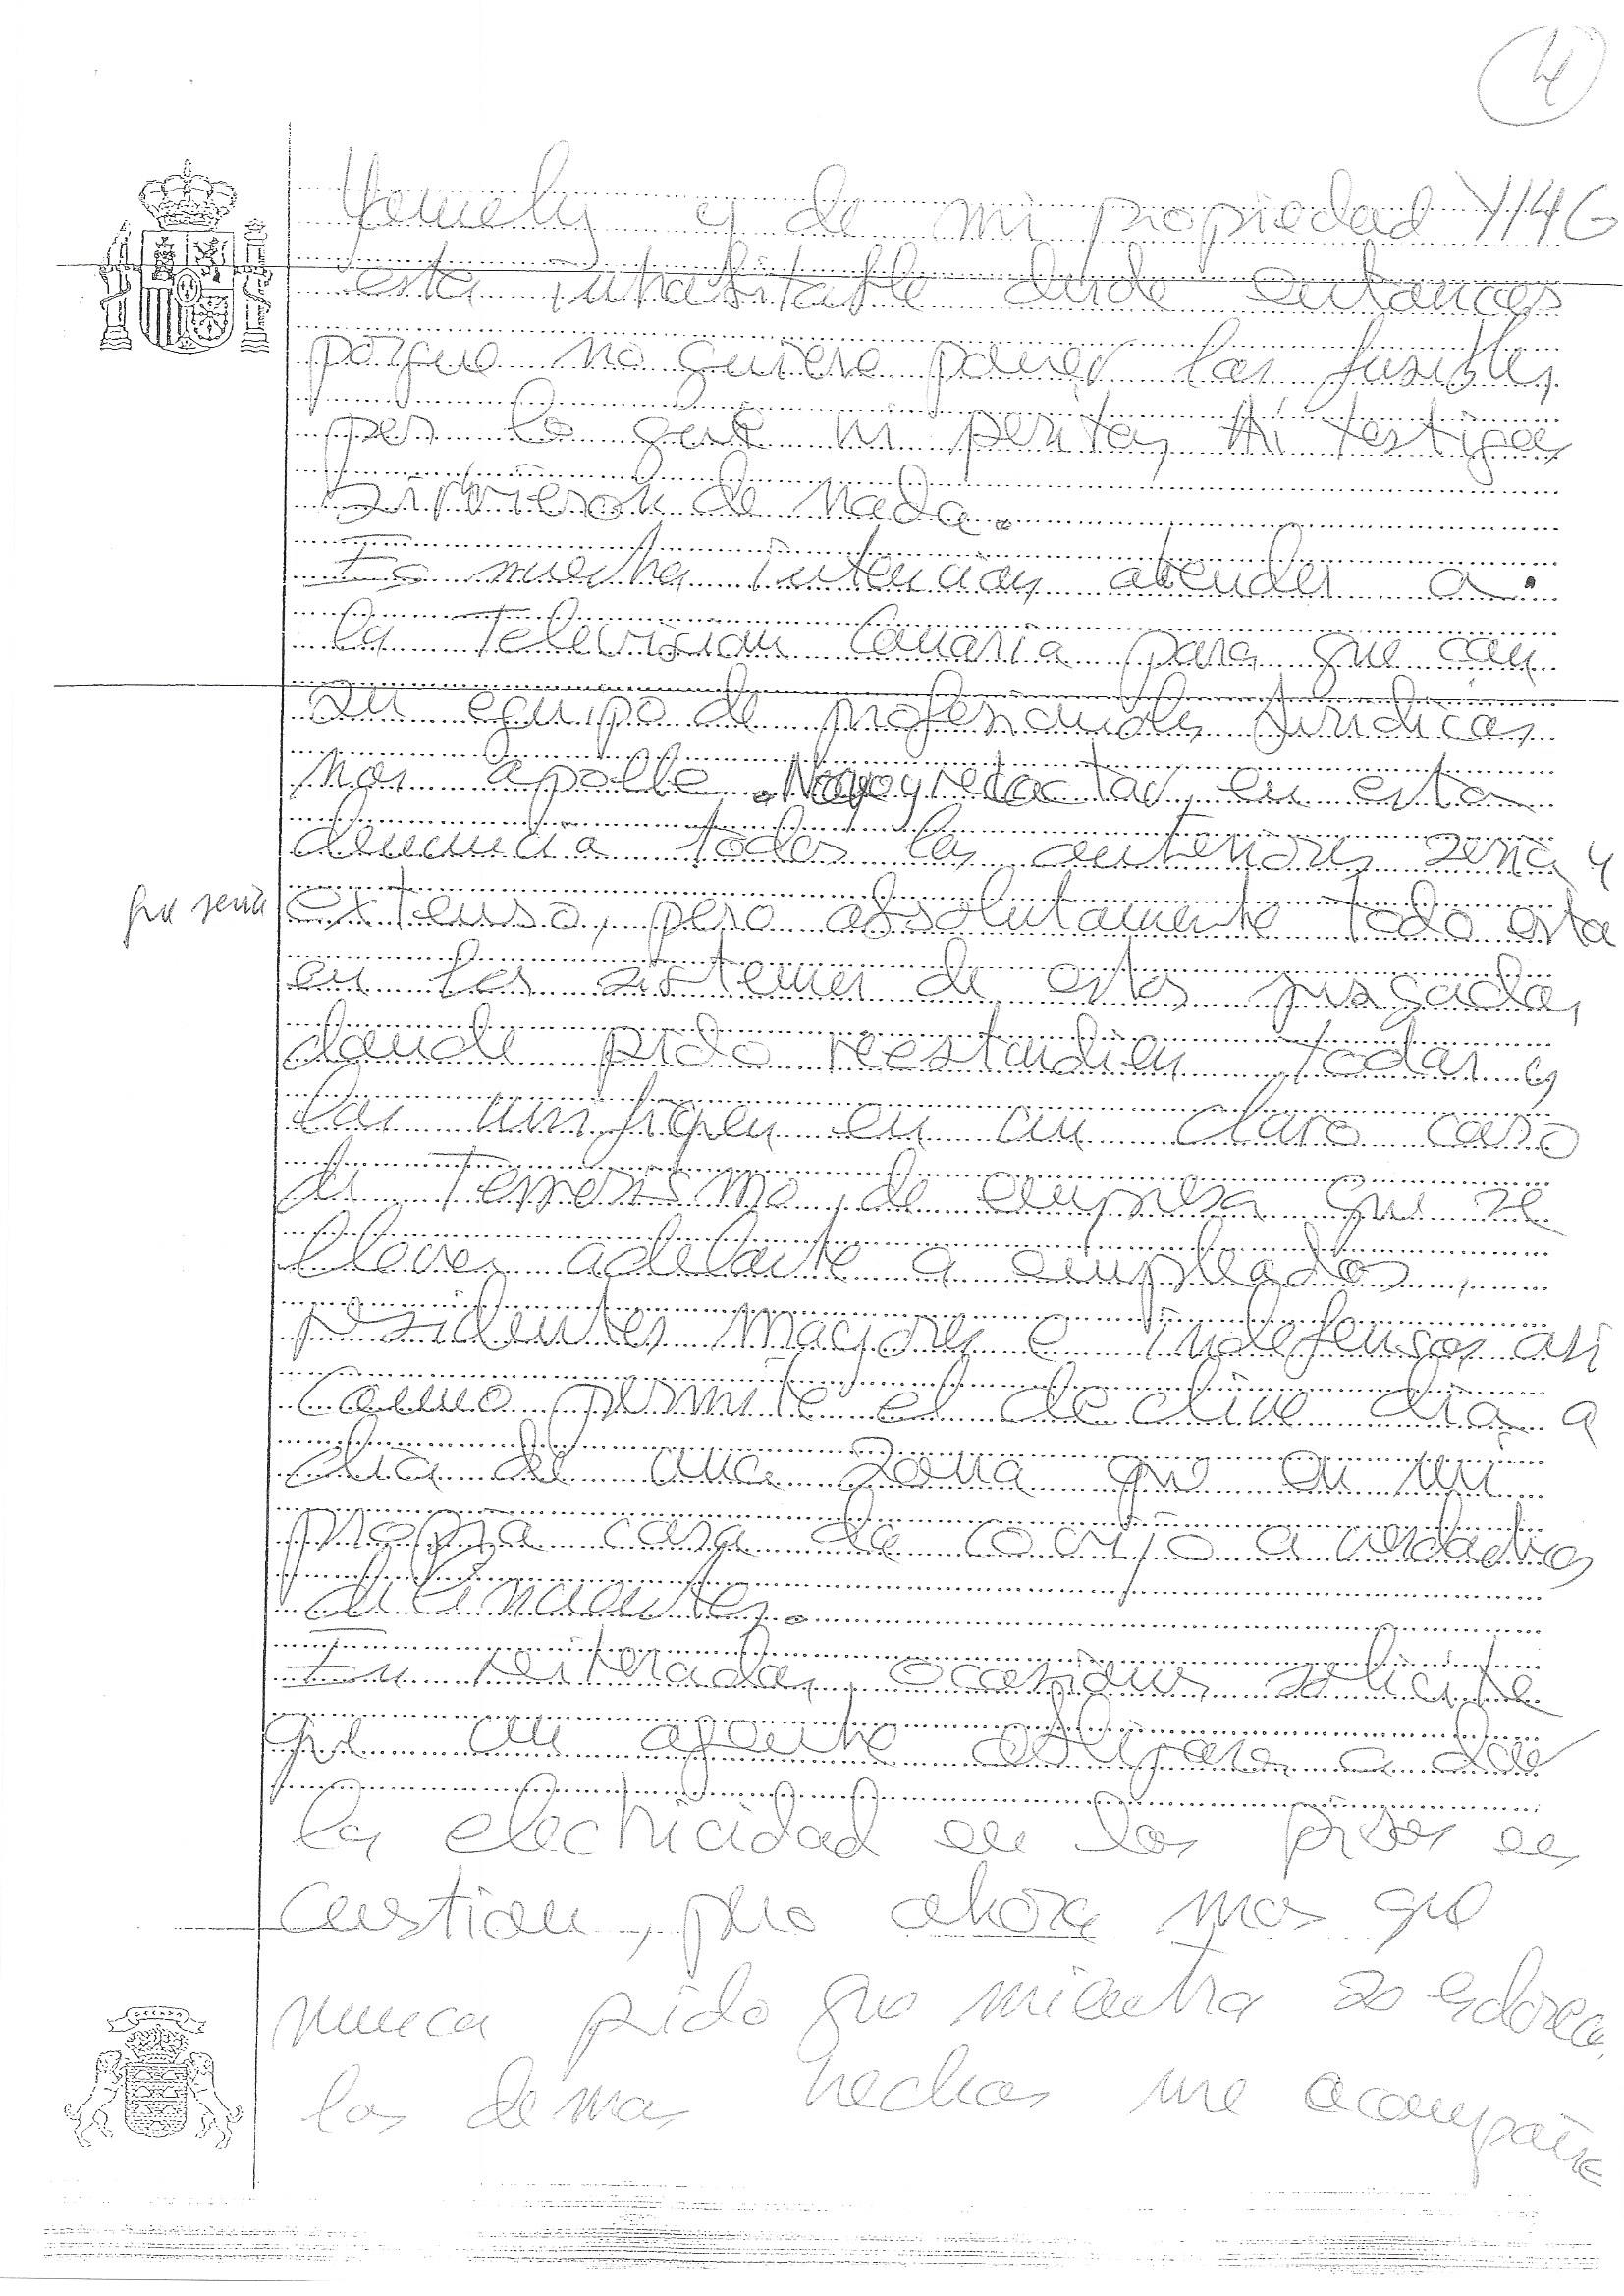 4
Yemely y de mi propiedad Y14G
esta inhabitable desde entonces
porque no quiere poner los fusibles
por lo que ni peritos, ni testigos
sirvieron de nada.
Es nuestra intencion atender a
la Television Canaria para que con
su equipo de profesionales Juridicos
nos apolle. No voy redactar en esta
denuncia todas las anteriores seria y
que seria
extenso, pero absolutamente todo esta
en los sistemas de estos juzgados,
donde pido reestudien todas y
las unifiquen en un claro caso
de Terrorismo de empresa que se
lleva adelante a empleados,
residentes mayores e indefensos asi
como permite el declive dia a
dia de una zona que en mi
propia casa de cobijo a verdaderos
delincuentes.
En reiteradas ocasiones solicite
que un agente obligara a dar
la electricidad en los pisos en
cuestion, pero ahora mas que
nunca pido que mientra se
los demas hechos me acompañe